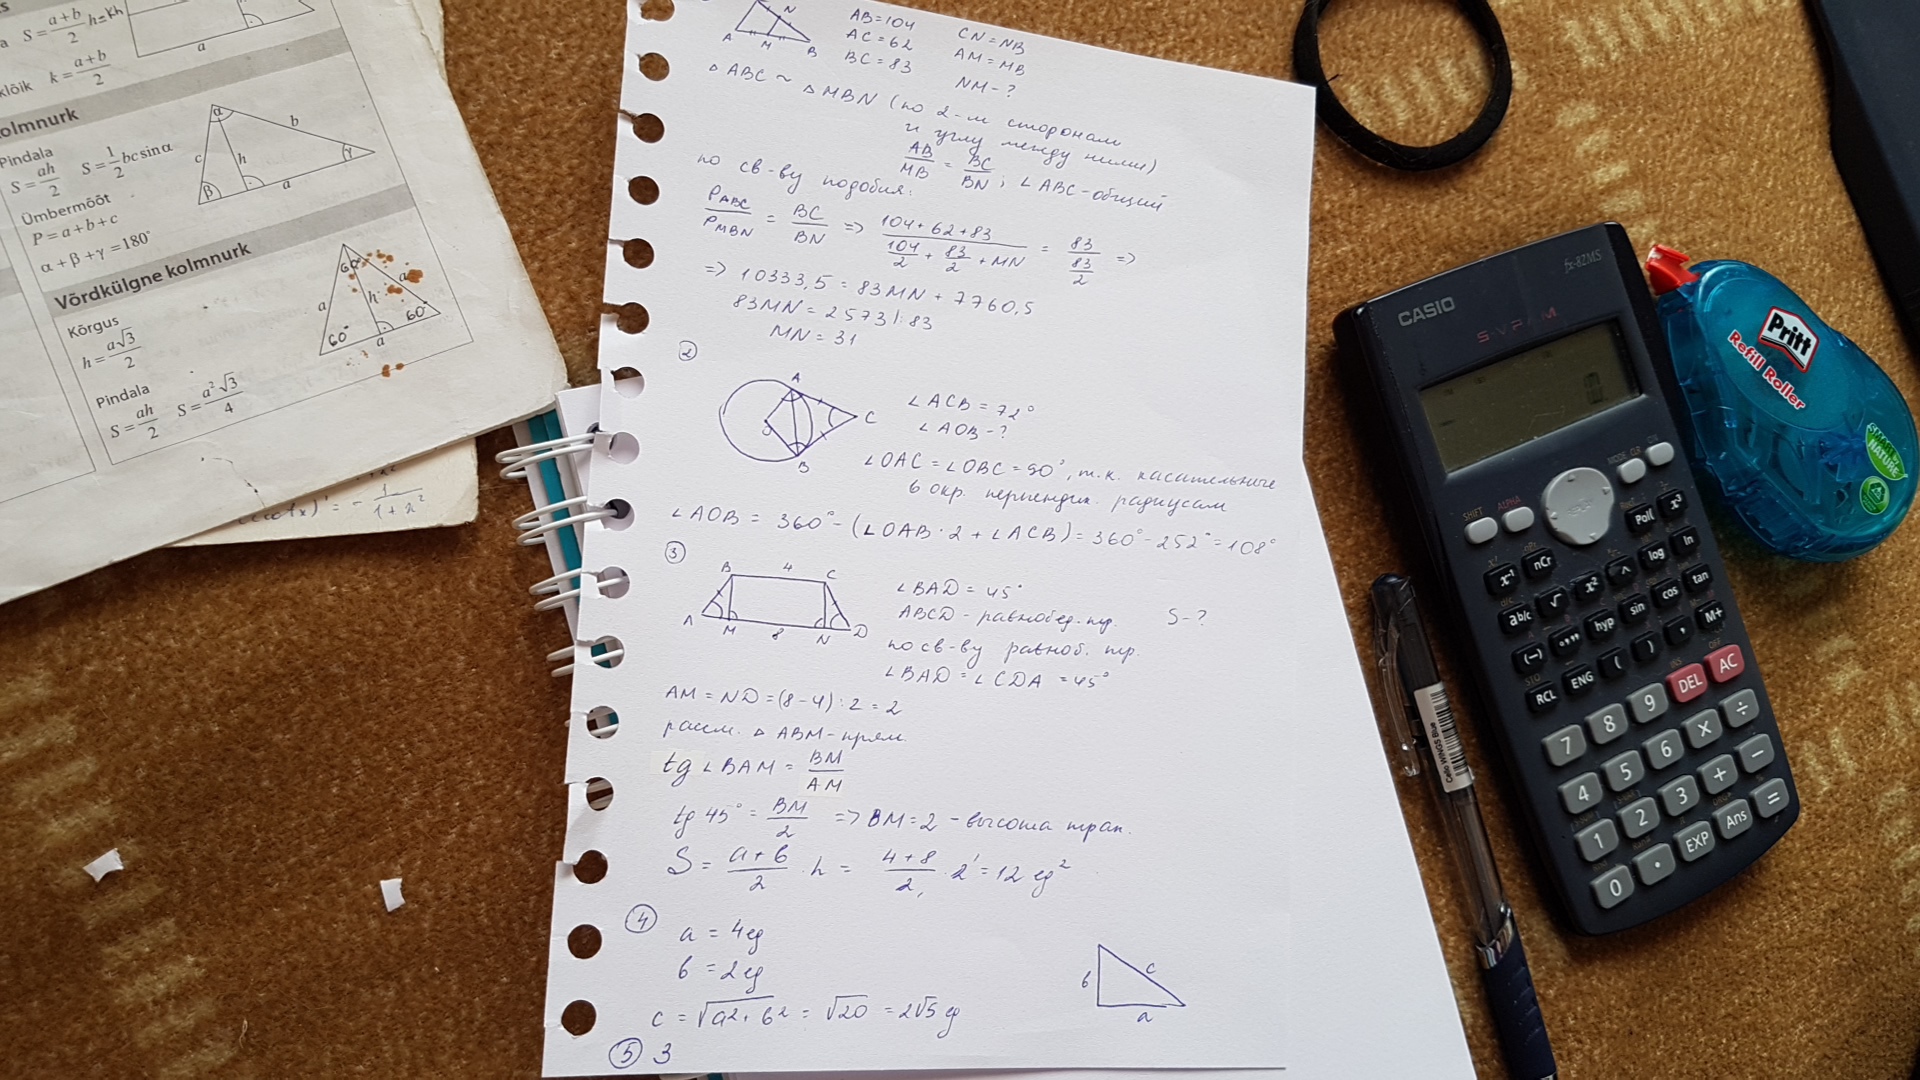 S = a+b/2 h = kh
a
klõik k = a+b/2
kolmnurk
Pindala
S = ah/2 S = 1/2 bc sin α
Ümbermõõt
P = a + b + c
α + β + γ = 180°
α b c h β a γ
Võrdkülgne kolmnurk
Kõrgus
h = a√3/2
Pindala
S = ah/2 S = a²√3/4
60° a a h 60° 60° a
= - 1/1+x²
N A M B
AB = 104 CN = NB
AC = 62 AM = MB
BC = 83 NM - ?
△ ABC ~ △ MBN (по 2-м сторонам
и углу между ними)
AB/MB = BC/BN ; ∠ ABC - общий
по св-ву подобия:
P ABC/P MBN = BC/BN => 104+62+83/104/2 + 83/2 + MN = 83/83/2 =>
=> 10333,5 = 83MN + 7760,5
83MN = 2573 |: 83
MN = 31
2
A O B C
∠ ACB = 72°
∠ AOB - ?
∠ OAC = ∠ OBC = 90°, т.к. касательные
в окр. перпендик. радиусам
∠ AOB = 360° - (∠ OAB · 2 + ∠ ACB) = 360° - 252° = 108°
3
B 4 C
A M 8 N D
∠ BAD = 45°
ABCD - равнобед. тр. S - ?
по св-ву равноб. тр.
∠ BAD = ∠ CDA = 45°
AM = ND = (8 - 4) : 2 = 2
рассм. △ ABM - прям.
tg ∠ BAM = BM/AM
tg 45° = BM/2 => BM = 2 - высота трап.
S = a+b/2 · h = 4+8/2 · 2 = 12 ед²
4
a = 4 ед
b = 2 ед
c = √a² + b² = √20 = 2√5 ед
b c a
5 3
CASIO
fx-82MS
S-V.P.A.M.
SHIFT ALPHA MODE CLR ON
x⁻¹ nCr Pol( x³
ab/c √ x² ^ log ln
(−) °'" hyp sin cos tan
RCL ENG ( ) , M+
7 8 9 DEL AC
4 5 6 × ÷
1 2 3 + −
0 . EXP Ans =
Pritt
Refill Roller
SMART by NATURE
Cello WINGS Blue